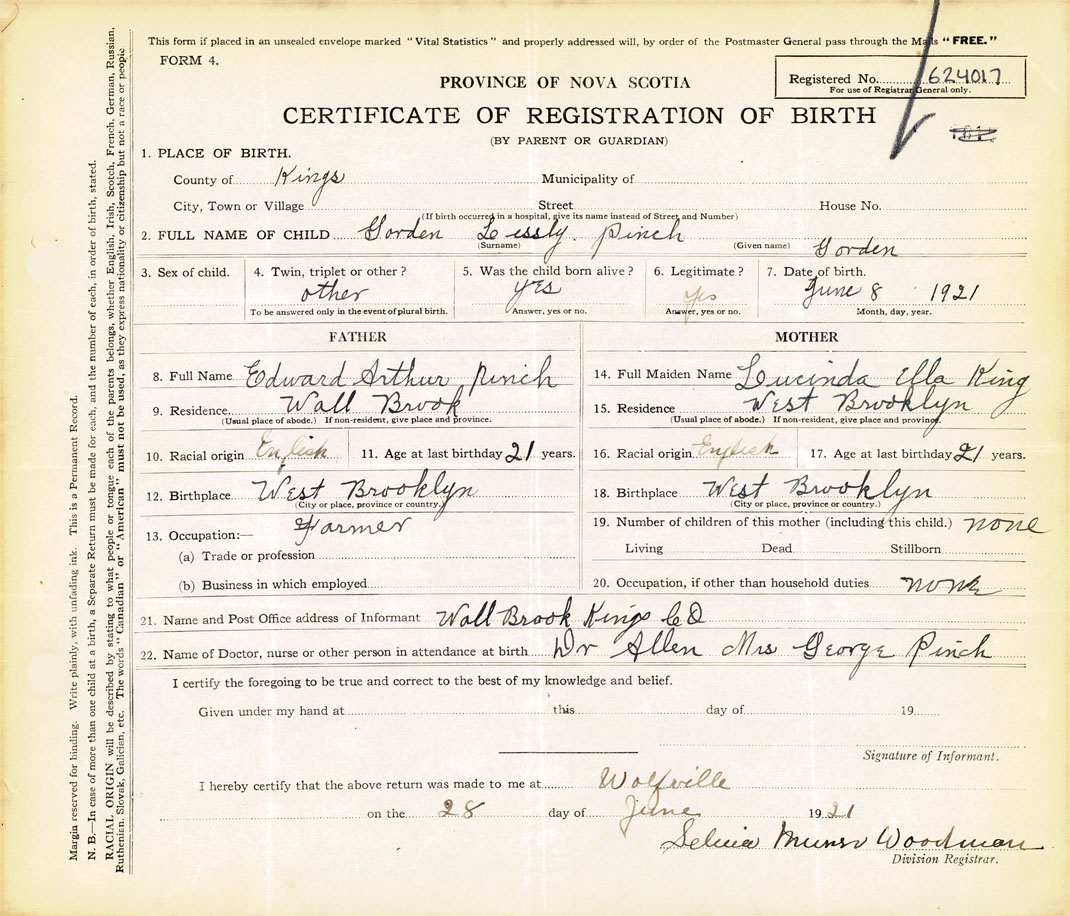 This form if placed in an unsealed envelope marked "Vital Statistics" and properly addressed will, by order of the Postmaster General pass through the Mails "FREE."
FORM 4.
Registered No. 624017
For use of Registrar General only.
PROVINCE OF NOVA SCOTIA
CERTIFICATE OF REGISTRATION OF BIRTH
(BY PARENT OR GUARDIAN)
1. PLACE OF BIRTH.
County of Kings Municipality of
City, Town or Village Street House No.
(If birth occurred in a hospital, give its name instead of Street and Number)
2. FULL NAME OF CHILD Gorden Lessly. Pinch Gorden
(Surname) (Given name)
3. Sex of child. 4. Twin, triplet or other? 5. Was the child born alive? 6. Legitimate? 7. Date of birth.
other yes yes June 8 1921
To be answered only in the event of plural birth. Answer, yes or no. Answer, yes or no. Month, day, year.
FATHER
8. Full Name Edward Arthur Pinch
9. Residence Wall Brook
(Usual place of abode.) If non-resident, give place and province.
10. Racial origin English 11. Age at last birthday 21 years.
12. Birthplace West Brooklyn
(City or place, province or country.)
13. Occupation:— Farmer
(a) Trade or profession
(b) Business in which employed
MOTHER
14. Full Maiden Name Lucinda Ella King
15. Residence West Brooklyn
(Usual place of abode.) If non-resident, give place and province.
16. Racial origin English 17. Age at last birthday 21 years.
18. Birthplace West Brooklyn
(City or place, province or country.)
19. Number of children of this mother (including this child.) none
Living Dead Stillborn
20. Occupation, if other than household duties none
21. Name and Post Office address of Informant Wall Brook Kings CO
22. Name of Doctor, nurse or other person in attendance at birth Dr Allen Mrs George Pinch
I certify the foregoing to be true and correct to the best of my knowledge and belief.
Given under my hand at this day of 19
Signature of Informant.
I hereby certify that the above return was made to me at Wolfville
on the 28 day of June 1921
Munro Woodman
Division Registrar.
Margin reserved for binding. Write plainly, with unfading ink. This is a Permanent Record.
N. B.—In case of more than one child at a birth, a Separate Return must be made for each, and the number of each, in order of birth, stated.
RACIAL ORIGIN will be described by stating to what people or tongue each of the parents belongs, whether English, Irish, Scotch, French, German, Russian,
Ruthenian, Slovak, Galician, etc. The words "Canadian" or "American" must not be used, as they express nationality or citizenship but not a race or people